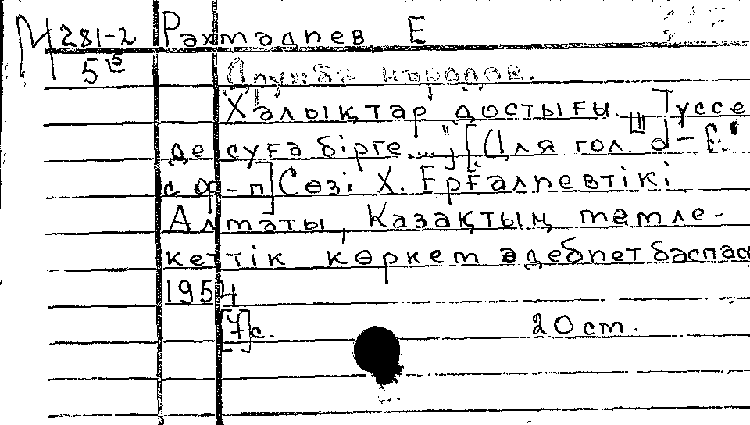 М 281-2 Рахмадиев Е
5е
Дружба народов.
Халықтар достығы. "Түссе
де суға бірге....", [Для гол.
с ф-п] Сөзі Х. Ерғалиевтікі
Алматы, Казақтың мемле-
кеттік көркем әдебиет баспас
1954
[4]с. 20 cm.